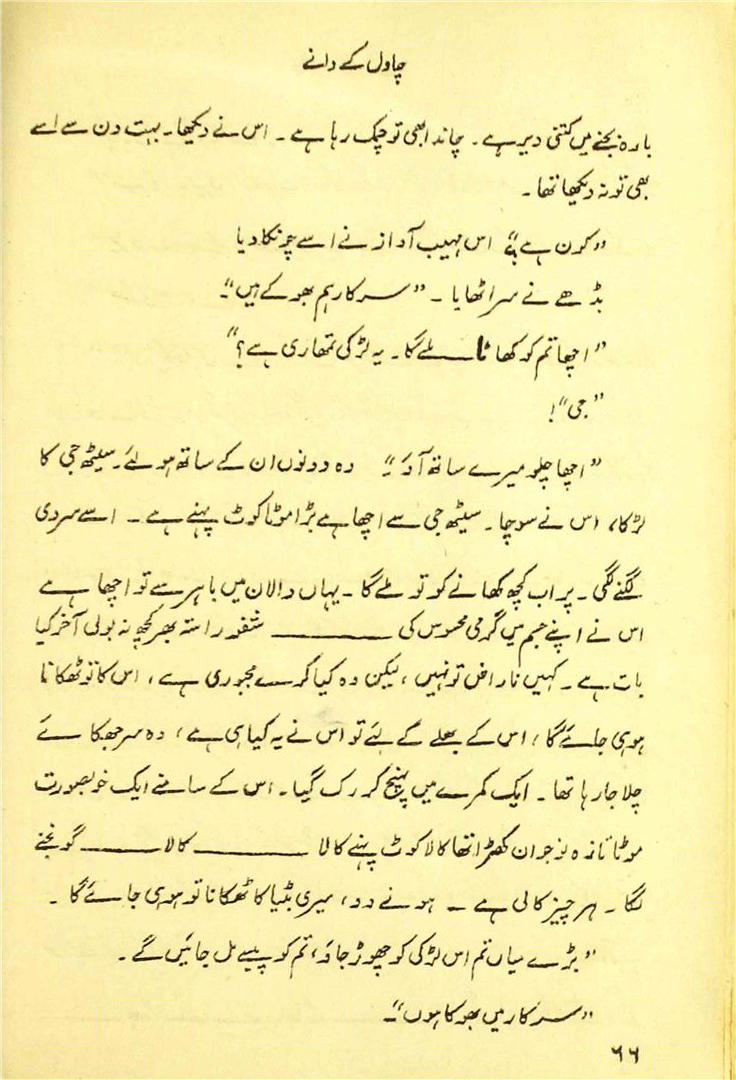 چاول کے دانے
بارہ بجنے میں کتنی دیر ہے۔ چاند ابھی تو چمک رہا ہے۔ اس نے دیکھا۔ بہت دن سے اسے
بھی تو نہ دیکھا تھا۔
”کون ہے؟“ اس مہیب آواز نے اسے چونکا دیا
بڈھے نے سر اٹھایا۔ ”سرکار ہم بھوکے ہیں“۔
”اچھا تم کو کھانا ملے گا۔ یہ لڑکی تمھاری ہے؟“
”جی“!
”اچھا چلو میرے ساتھ آؤ“۔ وہ دونوں ان کے ساتھ ہو لئے۔ سیٹھ جی کا
لڑکا، اس نے سوچا۔ سیٹھ جی سے اچھا ہے بڑا موٹا کوٹ پہنے ہے۔ اسے سردی
لگنے لگی۔ پر اب کچھ کھانے کو تو ملے گا۔ یہاں دالان میں باہر سے تو اچھا ہے
اس نے اپنے جسم میں گرمی محسوس کی ــــــــ شفو راستہ بھر کچھ نہ بولی آخر کیا
بات ہے۔ کہیں ناراض تو نہیں، لیکن وہ کیا کرے مجبوری ہے، اس کا تو ٹھکانا
ہو ہی جائے گا، اس کے بھلے کے لئے تو اس نے یہ کیا ہی ہے، وہ سر جھکائے
چلا جا رہا تھا۔ ایک کمرے میں پہنچ کر رک گیا۔ اس کے سامنے ایک خوبصورت
موٹا تازہ نوجوان کھڑا تھا کالا کوٹ پہنے کالا ــــــــ کالا ــــــــ گونجنے
لگا۔ ہر چیز کالی ہے ۔ ہونے دو، میری بٹیا کا ٹھکانا تو ہو ہی جائے گا۔
”بڑے میاں تم اس لڑکی کو چھوڑ جاؤ، تم کو پیسے مل جائیں گے۔
”سرکار میں بھوکا ہوں“۔
۶۶